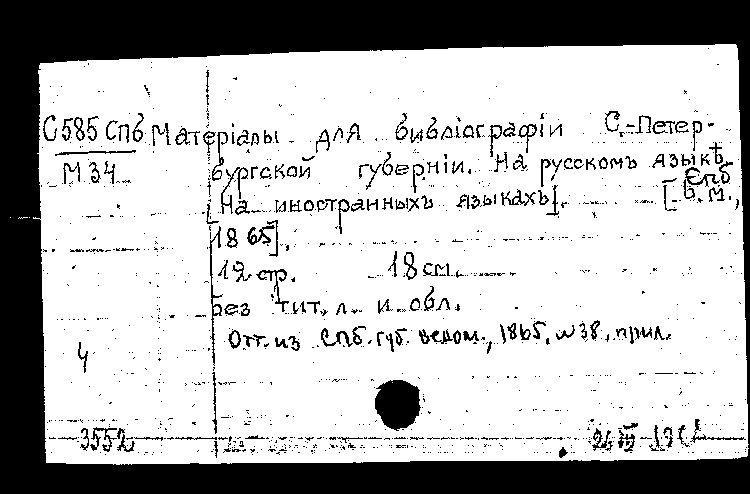 С585 Спб Матеріалы для библіографіи С.-Петер-
М34 бургской губерніи. На русскомъ языкѣ
[На иностранныхъ языкахъ]. [Спб
б.м.,
1865].
12 стр. 18 см.
Без тит. л. и обл.
Отт. из Спб. губ. ведом., 1865, №38, прил.
4
3552